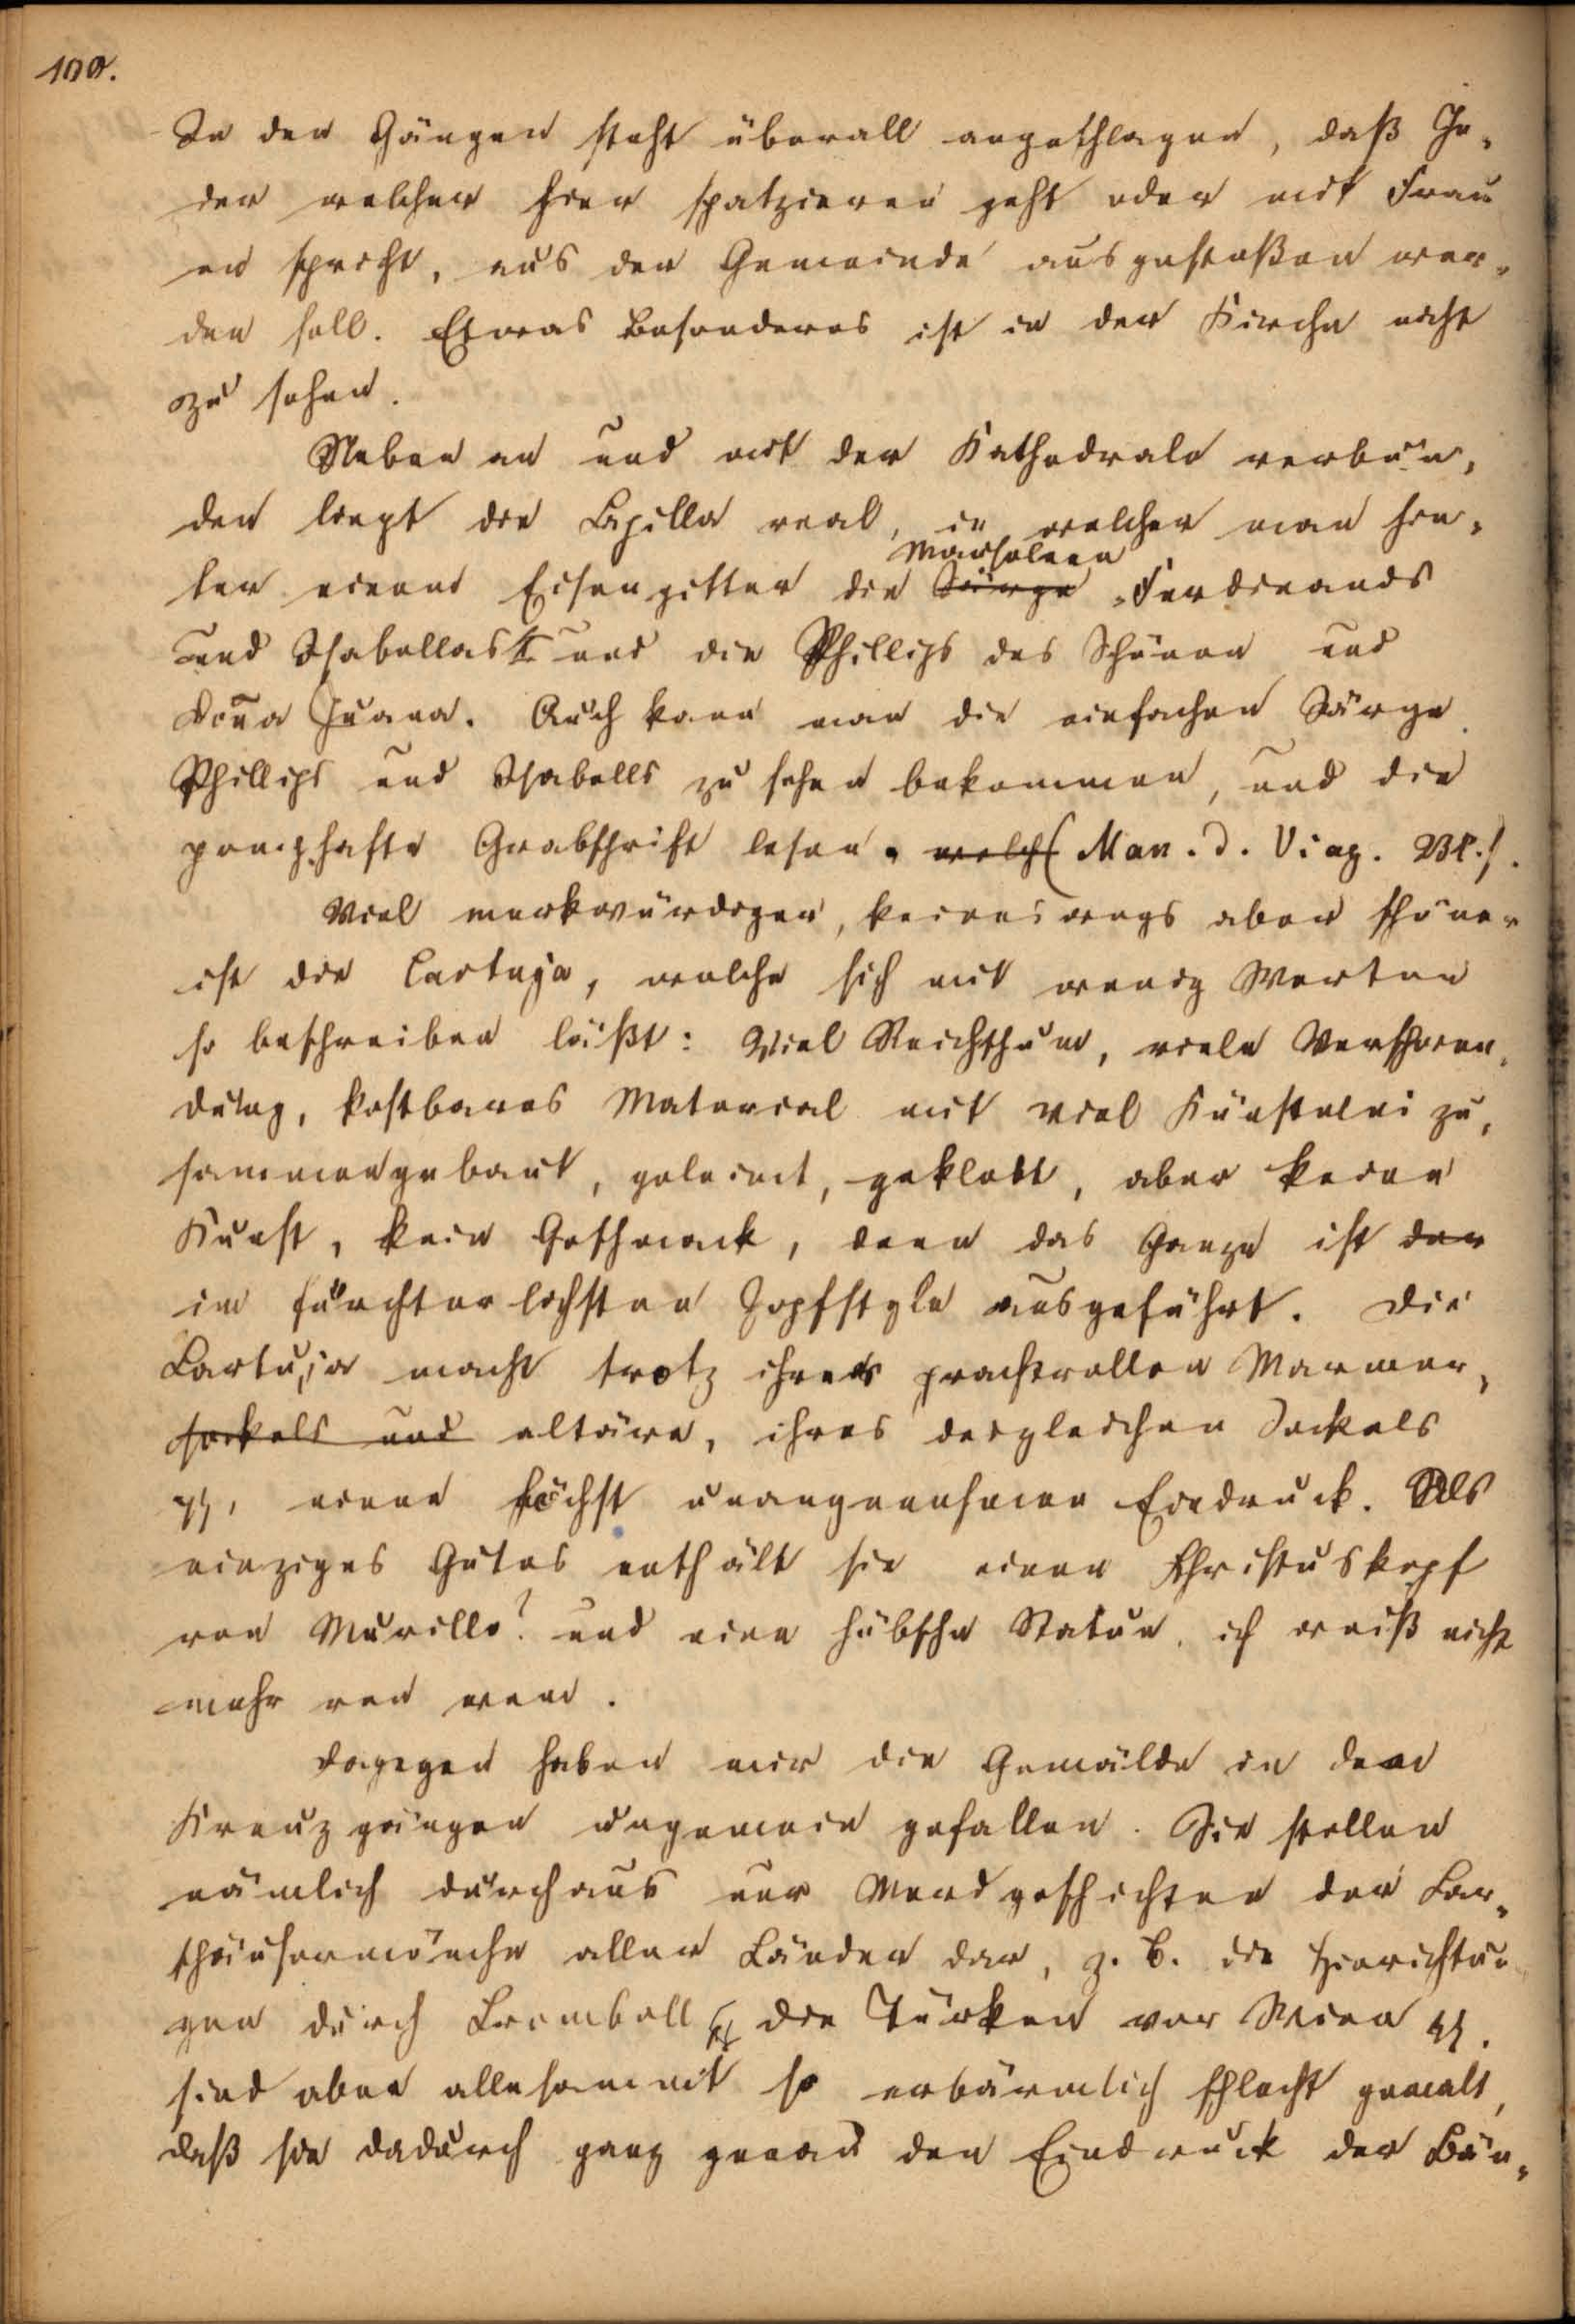 100.
In den Gängen steht überall angeschlagen, daß Je-
der welcher hier spatzieren geht oder mit Frau
en spricht, aus der Gemeinde ausgestoßen wer-
den soll. Etwas Besonderes ist in der Kirche nicht
zu sehen.
Neben an und mit der Kathedrale verbun-
den liegt die Capilla real, in welcher man hin-
Mausoleen
ter einem Eisengitter die Särge Ferdinands
und Isabellas und die Phillips des Schönen und
Dona Juana. Auch kann man die einfachen Särge
Phillips und Isabells zu sehen bekommen, und die
pomphafte Grabschrift lesen. welch (Man. d. Viag. Bl.).
Viel merkwürdiger, keineswegs aber schöner
ist die Cartuja, welche sich mit wenig Worten
so beschreiben läßt: Viel Reichthum, viele Verschwen-
dung, kostbares Material mit viel Künstelei zu-
sammengebaut, geleimt, geklebt, aber keine
Kunst, kein Geschmack, denn das Ganze ist der
im fürchterlichsten Zopfstyle ausgeführt. Die
Cartuja macht trotz ihres prachtvollen Marmor-
sockels und altäre, ihres desgleichen Sockels
einen höchst unangenehmen Eindruck. Als
einziges Gutes enthält sie einen Christuskopf
von Murillo? und eine hübsche Statue, ich weiß nicht
mehr von wem.
Dagegen haben mir die Gemälde in den
Kreuzgängen ungemein gefallen. Sie stellen
nämlich durchaus nur Mordgeschichten der Car-
thäusermönche aller Länder dar, z. B. die Hinrichtun
gen durch Cromwell, die Türken vor Wien
sind aber allesammt so erbärmlich schlecht gemalt,
daß sie dadurch ganz genau den Eindruck der Bän-